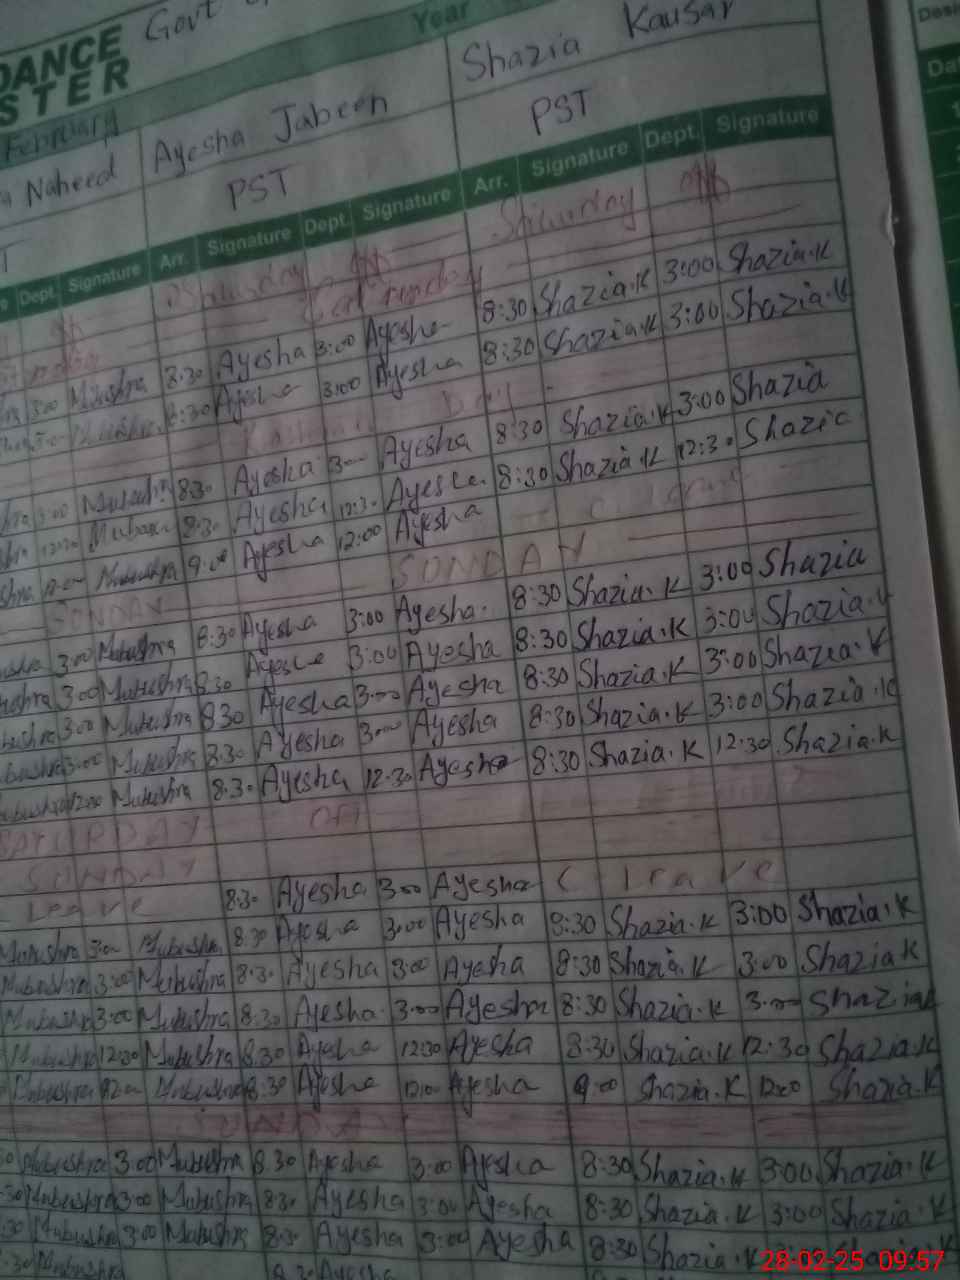 Govt
DANCE Year
STER
February
Naheed Ayesha Jabeen Shazia Kausar
PST PST
Dept. Signature Arr. Signature Dept. Signature Arr. Signature Dept. Signature
off
8:30 Ayesha 3:00 Ayesha 8:30 Shazia.K 3:00 Shazia.K
8:30 Ayesha 3:00 Ayesha 8:30 Shazia.K 3:00 Shazia.K
Day
3:00 8:30 Ayesha 3:00 Ayesha 8:30 Shazia.K 3:00 Shazia
12:30 8:30 Ayesha 12:30 Ayesha 8:30 Shazia.K 12:30 Shazia
9:00 Ayesha 12:00 Ayesha
SUNDAY SUNDAY
3:00 Mubushra 8:30 Ayesha 3:00 Ayesha 8:30 Shazia.K 3:00 Shazia
3:00 Mubushra 8:30 Ayesha 3:00 Ayesha 8:30 Shazia.K 3:00 Shazia.K
3:00 Mubushra 8:30 Ayesha 3:00 Ayesha 8:30 Shazia.K 3:00 Shazia.K
3:00 Mubushra 8:30 Ayesha 3:00 Ayesha 8:30 Shazia.K 3:00 Shazia.K
12:00 Mubushra 8:30 Ayesha 12:30 Ayesha 8:30 Shazia.K 12:30 Shazia.K
SATURDAY OFF
SUNDAY
Leave 8:30 Ayesha 3:00 Ayesha C leave
Mubushra 3:00 Mubushra 8:30 Ayesha 3:00 Ayesha 8:30 Shazia.K 3:00 Shazia.K
Mubushra 3:00 Mubushra 8:30 Ayesha 3:00 Ayesha 8:30 Shazia.K 3:00 Shazia K
Mubushra 3:00 Mubushra 8:30 Ayesha 3:00 Ayesha 8:30 Shazia.K 3:00 Shazia K
Mubushra 12:30 Mubushra 8:30 Ayesha 12:30 Ayesha 8:30 Shazia.K 12:30 Shazia.K
Mubushra 12:00 Mubushra 8:30 Ayesha 12:00 Ayesha 9:00 Shazia.K 12:00 Shazia.K
SUNDAY
Mubushra 3:00 Mubushra 8:30 Ayesha 3:00 Ayesha 8:30 Shazia.K 3:00 Shazia.K
Mubushra 3:00 Mubushra 8:30 Ayesha 3:00 Ayesha 8:30 Shazia.K 3:00 Shazia.K
Mubushra 3:00 Mubushra 8:30 Ayesha 3:00 Ayesha 8:30 Shazia.K
Mubushra 8:30 Ayesha
28-02-25 09:57